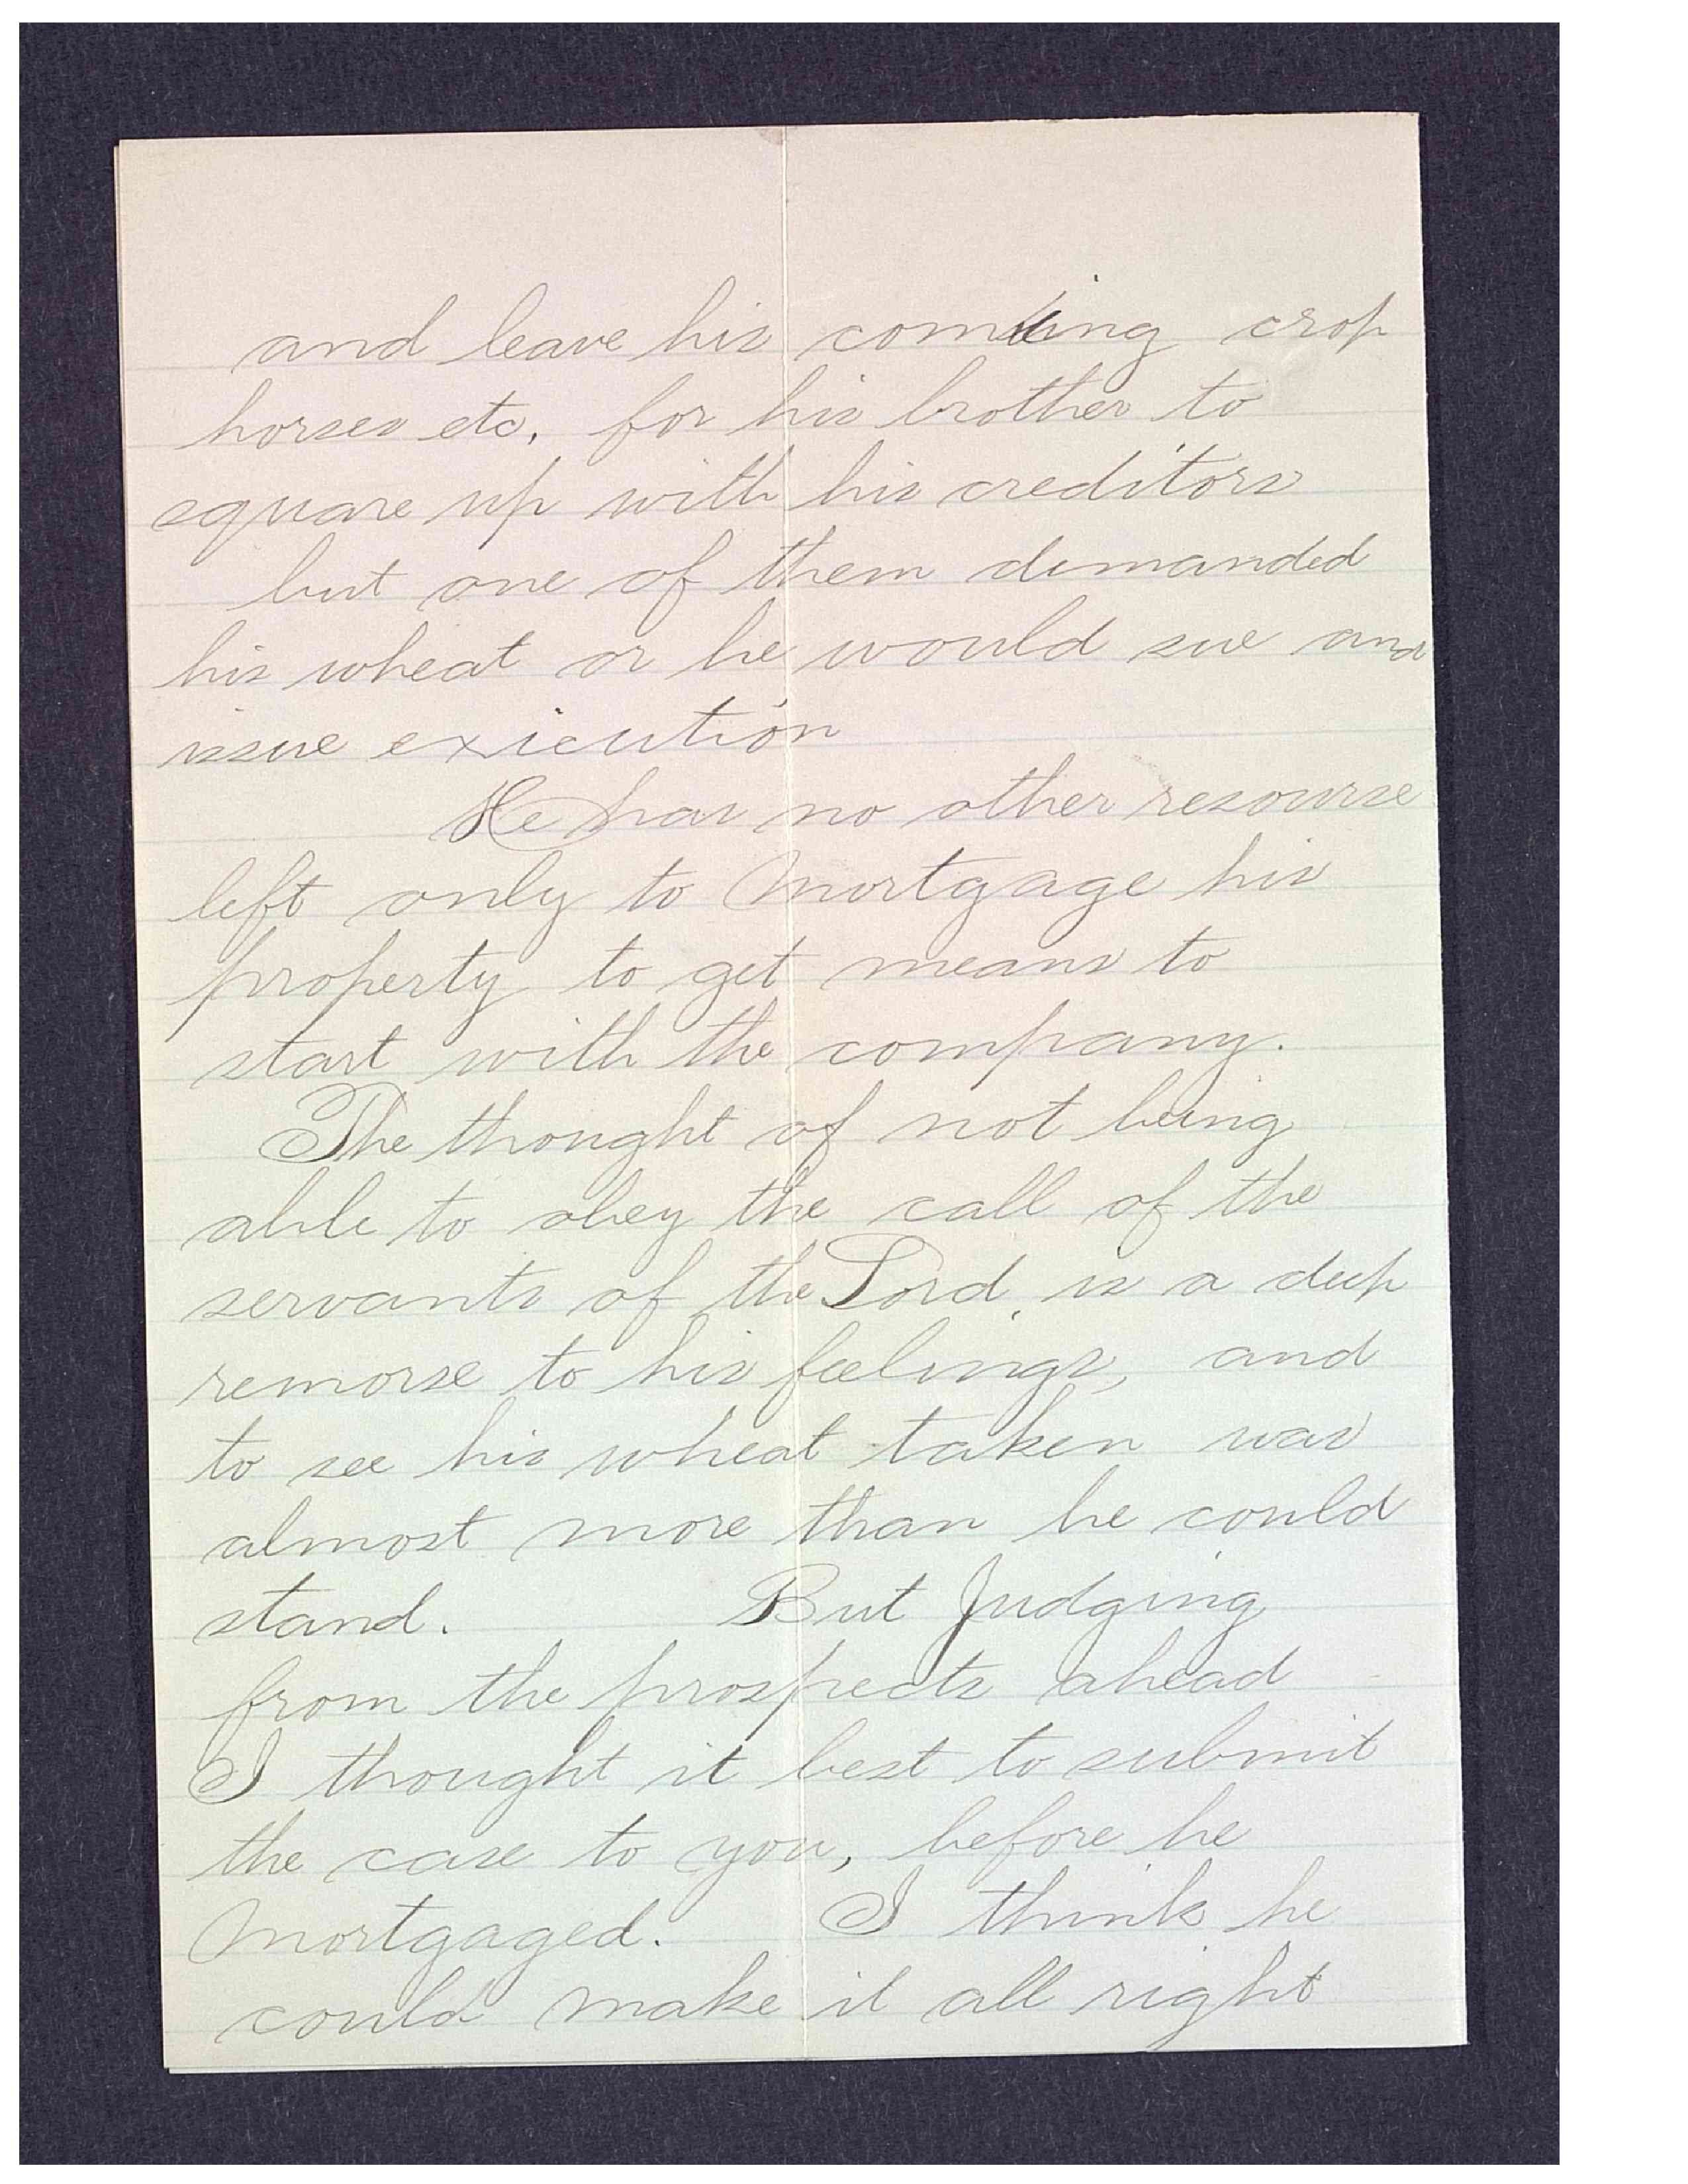 and leave his coming crop
horses etc, for his brother to
square up with his creditors
but one of them demanded
his wheat or he would sue and
issue exicution
He has no other resourse
left only to mortgage his
property to get means to
start with the company.
The thought of not being
able to obey the call of the
servants of the Lord, is a deep
remorse to his feelings, and
to see his wheat taken was
almost more than he could
stand. But Judging
from the prospects ahead
I thought it best to submit
the case to you, before he
mortgaged. I think he
could make it all right